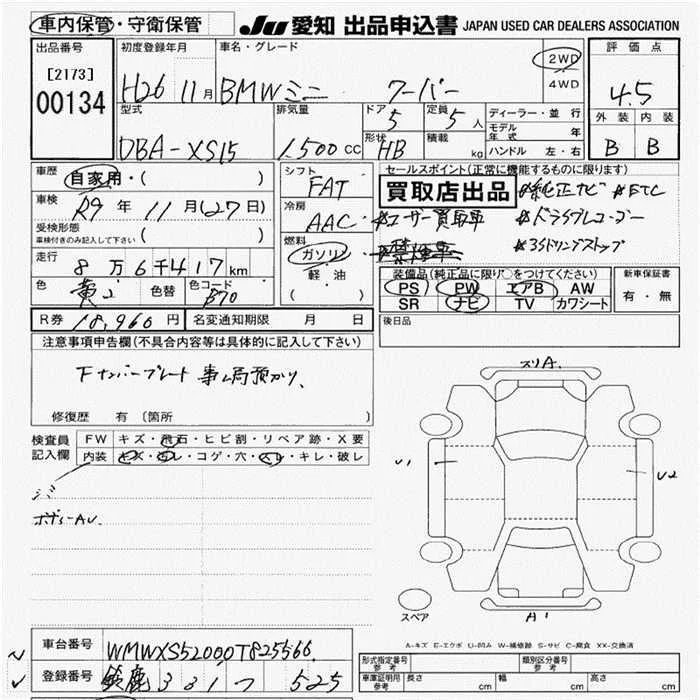 車内保管・守衛保管 JU 愛知 出品申込書 JAPAN USED CAR DEALERS ASSOCIATION
出品番号 初度登録年月 車名・グレード 2WD 4WD 評価点
[2173] 00134 H26 11月 BMWミニ クーパー 4.5
型式 排気量 ドア 5 定員 5人 ディーラー・並行 外装 内装
モデル年式 年
DBA-XS15 1,500 cc 形状 HB 積載 kg ハンドル 左・右 B B
車歴 自家用・( ) シフト FAT セールスポイント(正常に機能するものに限ります)
買取店出品 *純正ナビ *ETC
車検 R9年 11月(27日) 冷房 AAC *ユーザー買取車 *ドライブレコーダー
受検形態 車検付きのみ記入して下さい ( ) 燃料 ガソリン *禁煙車 *アイドリングストップ
走行 8万6千417km 軽油 ( ) 装備品(純正品に限り○をつけてください) 新車保証書
色 黄2 色替 色コード B70 PS PW エアB AW 有・無
SR ナビ TV カワシート
R券 18,960円 名変通知期限 月 日 後日品
注意事項申告欄(不具合内容等は具体的に記入して下さい)
Fナンバープレート 事ム局預かり、
修復歴 有 〔箇所 〕
スリA.
検査員記入欄 FW キズ・飛石・ヒビ割・リペア跡・X要
内装 キズ・ヨゴレ・コゲ・穴・スレ・キレ・破レ
U1 U2
ボディーAU.
スペア A1
A-キズ E-エクボ U-凹み W-補修跡 S-サビ C-腐食 XX-交換済
車台番号 WMWXS52000T825566
形式指定番号 参考 類別区分番号 参考
登録番号 鈴鹿 331 つ 525 車庫証明 参考 長さ cm 幅 cm 高さ cm